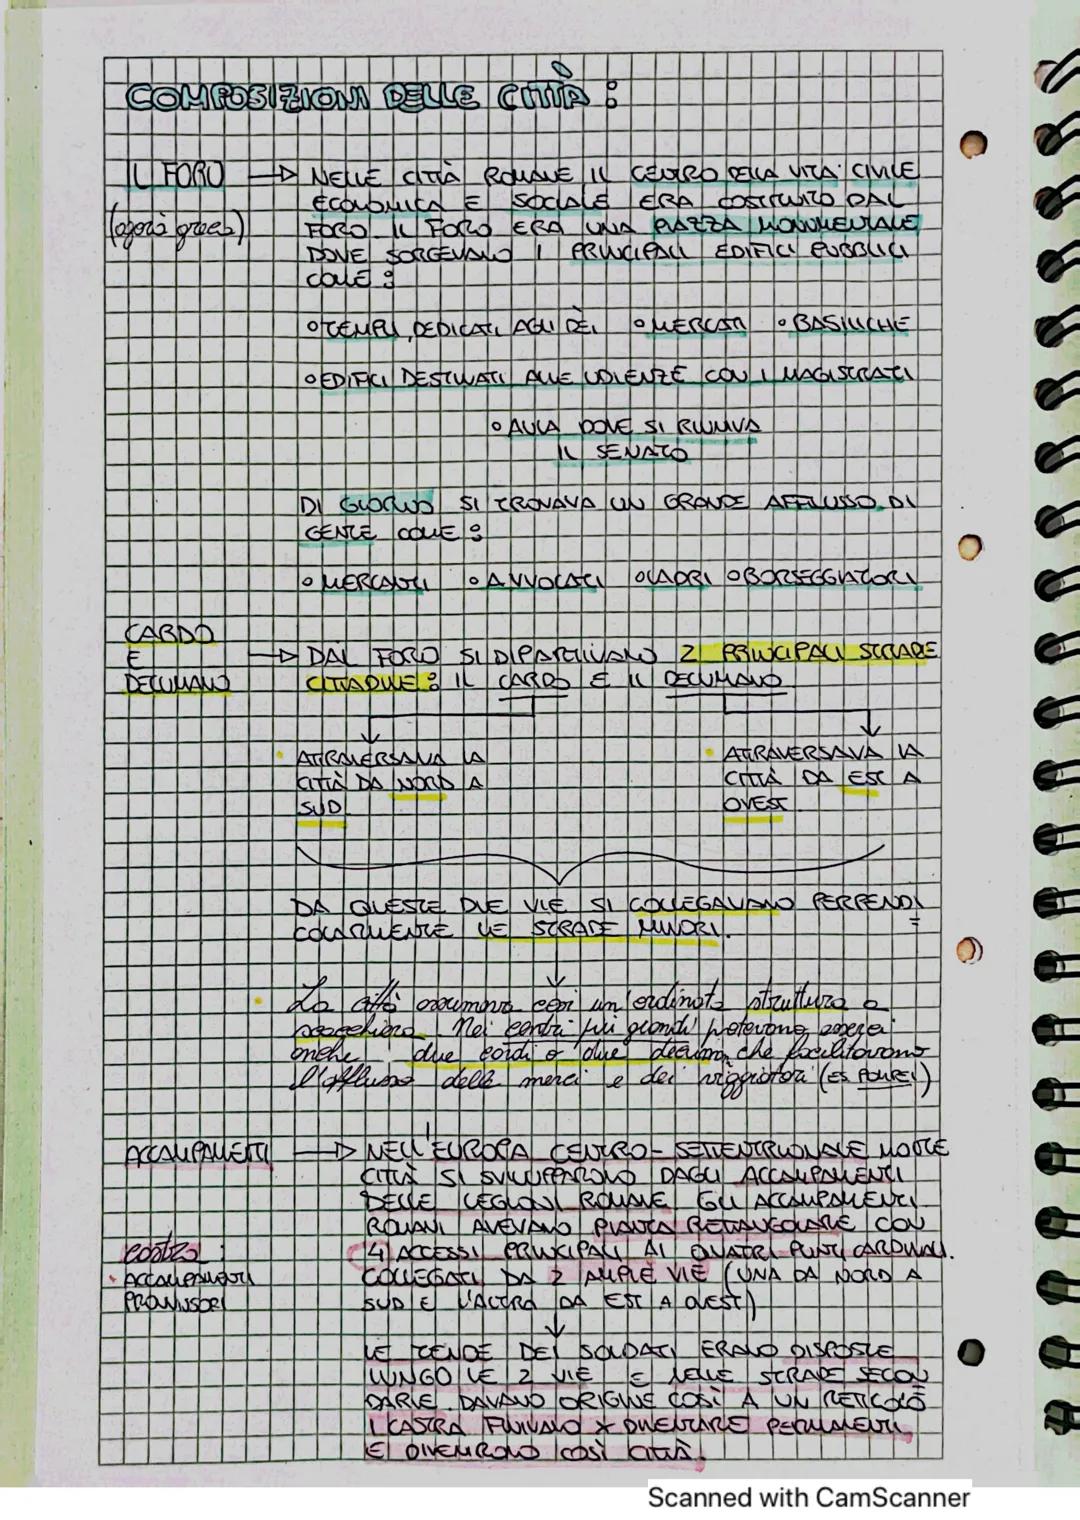 COMPOSIZIONI DELLE CITTÀ :
IL FORO → NELLE CITTÀ ROMANE IL CENTRO DELLA VITA CIVILE
(agorà greca)
ECONOMICA E SOCIALE ERA COSTITUITO DAL
FORO. IL FORO ERA UNA PIAZZA MONUMENTALE
DOVE SORGEVANO I PRINCIPALI EDIFICI PUBBLICI
COME :
• TEMPLI DEDICATI AGLI DÈI • MERCATI • BASILICHE
• EDIFICI DESTINATI ALLE UDIENZE CON I MAGISTRATI
• AULA DOVE SI RIUNIVA
IL SENATO
DI GIORNO SI TROVAVA UN GRANDE AFFLUSSO DI
GENTE COME :
• MERCANTI • AVVOCATI • LADRI • BORSEGGIATORI
CARDO
E
DECUMANO
→ DAL FORO SI DIPARTIVANO 2 PRINCIPALI STRADE
CITTADINE : IL CARDO E IL DECUMANO
• ATTRAVERSAVA LA
CITTÀ DA NORD A
SUD
• ATTRAVERSAVA LA
CITTÀ DA EST A
OVEST.
DA QUESTE DUE VIE SI COLLEGAVANO PERPENDI
COLARMENTE LE STRADE MINORI.
La città assumeva così un'ordinata struttura a
scacchiera. Nei centri più grandi potevano esserci
anche due cardi o due decumani che facilitavano
l'afflusso delle merci e dei viaggiatori (ES. POMPEI)
ACCAMPAMENTI → NELL'EUROPA CENTRO-SETTENTRIONALE MOLTE
CITTÀ SI SVILUPPARONO DAGLI ACCAMPAMENTI
DELLE LEGIONI ROMANE. GLI ACCAMPAMENTI
ROMANI AVEVANO PIANTA RETTANGOLARE CON
4 ACCESSI PRINCIPALI AI QUATTRI PUNTI CARDINALI.
COLLEGATI DA 2 AMPLE VIE (UNA DA NORD A
SUD E L'ALTRA DA EST A OVEST)
castra :
• ACCAMPAMENTI
PROVVISORI
LE TENDE DEI SOLDATI ERANO DISPOSTE
LUNGO LE 2 VIE E NELLE STRADE SECON
DARIE. DAVANO ORIGINE COSÌ A UN RETICOLO
I CASTRA FINIVANO X DIVENTARE PERMANENTI
E DIVENIRONO COSÌ CITTÀ.
Scanned with CamScanner